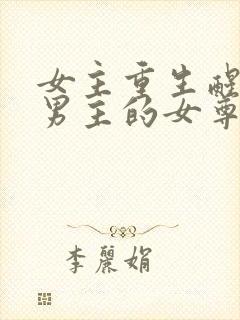 女主重生醒
男主的女尊
李麗娟